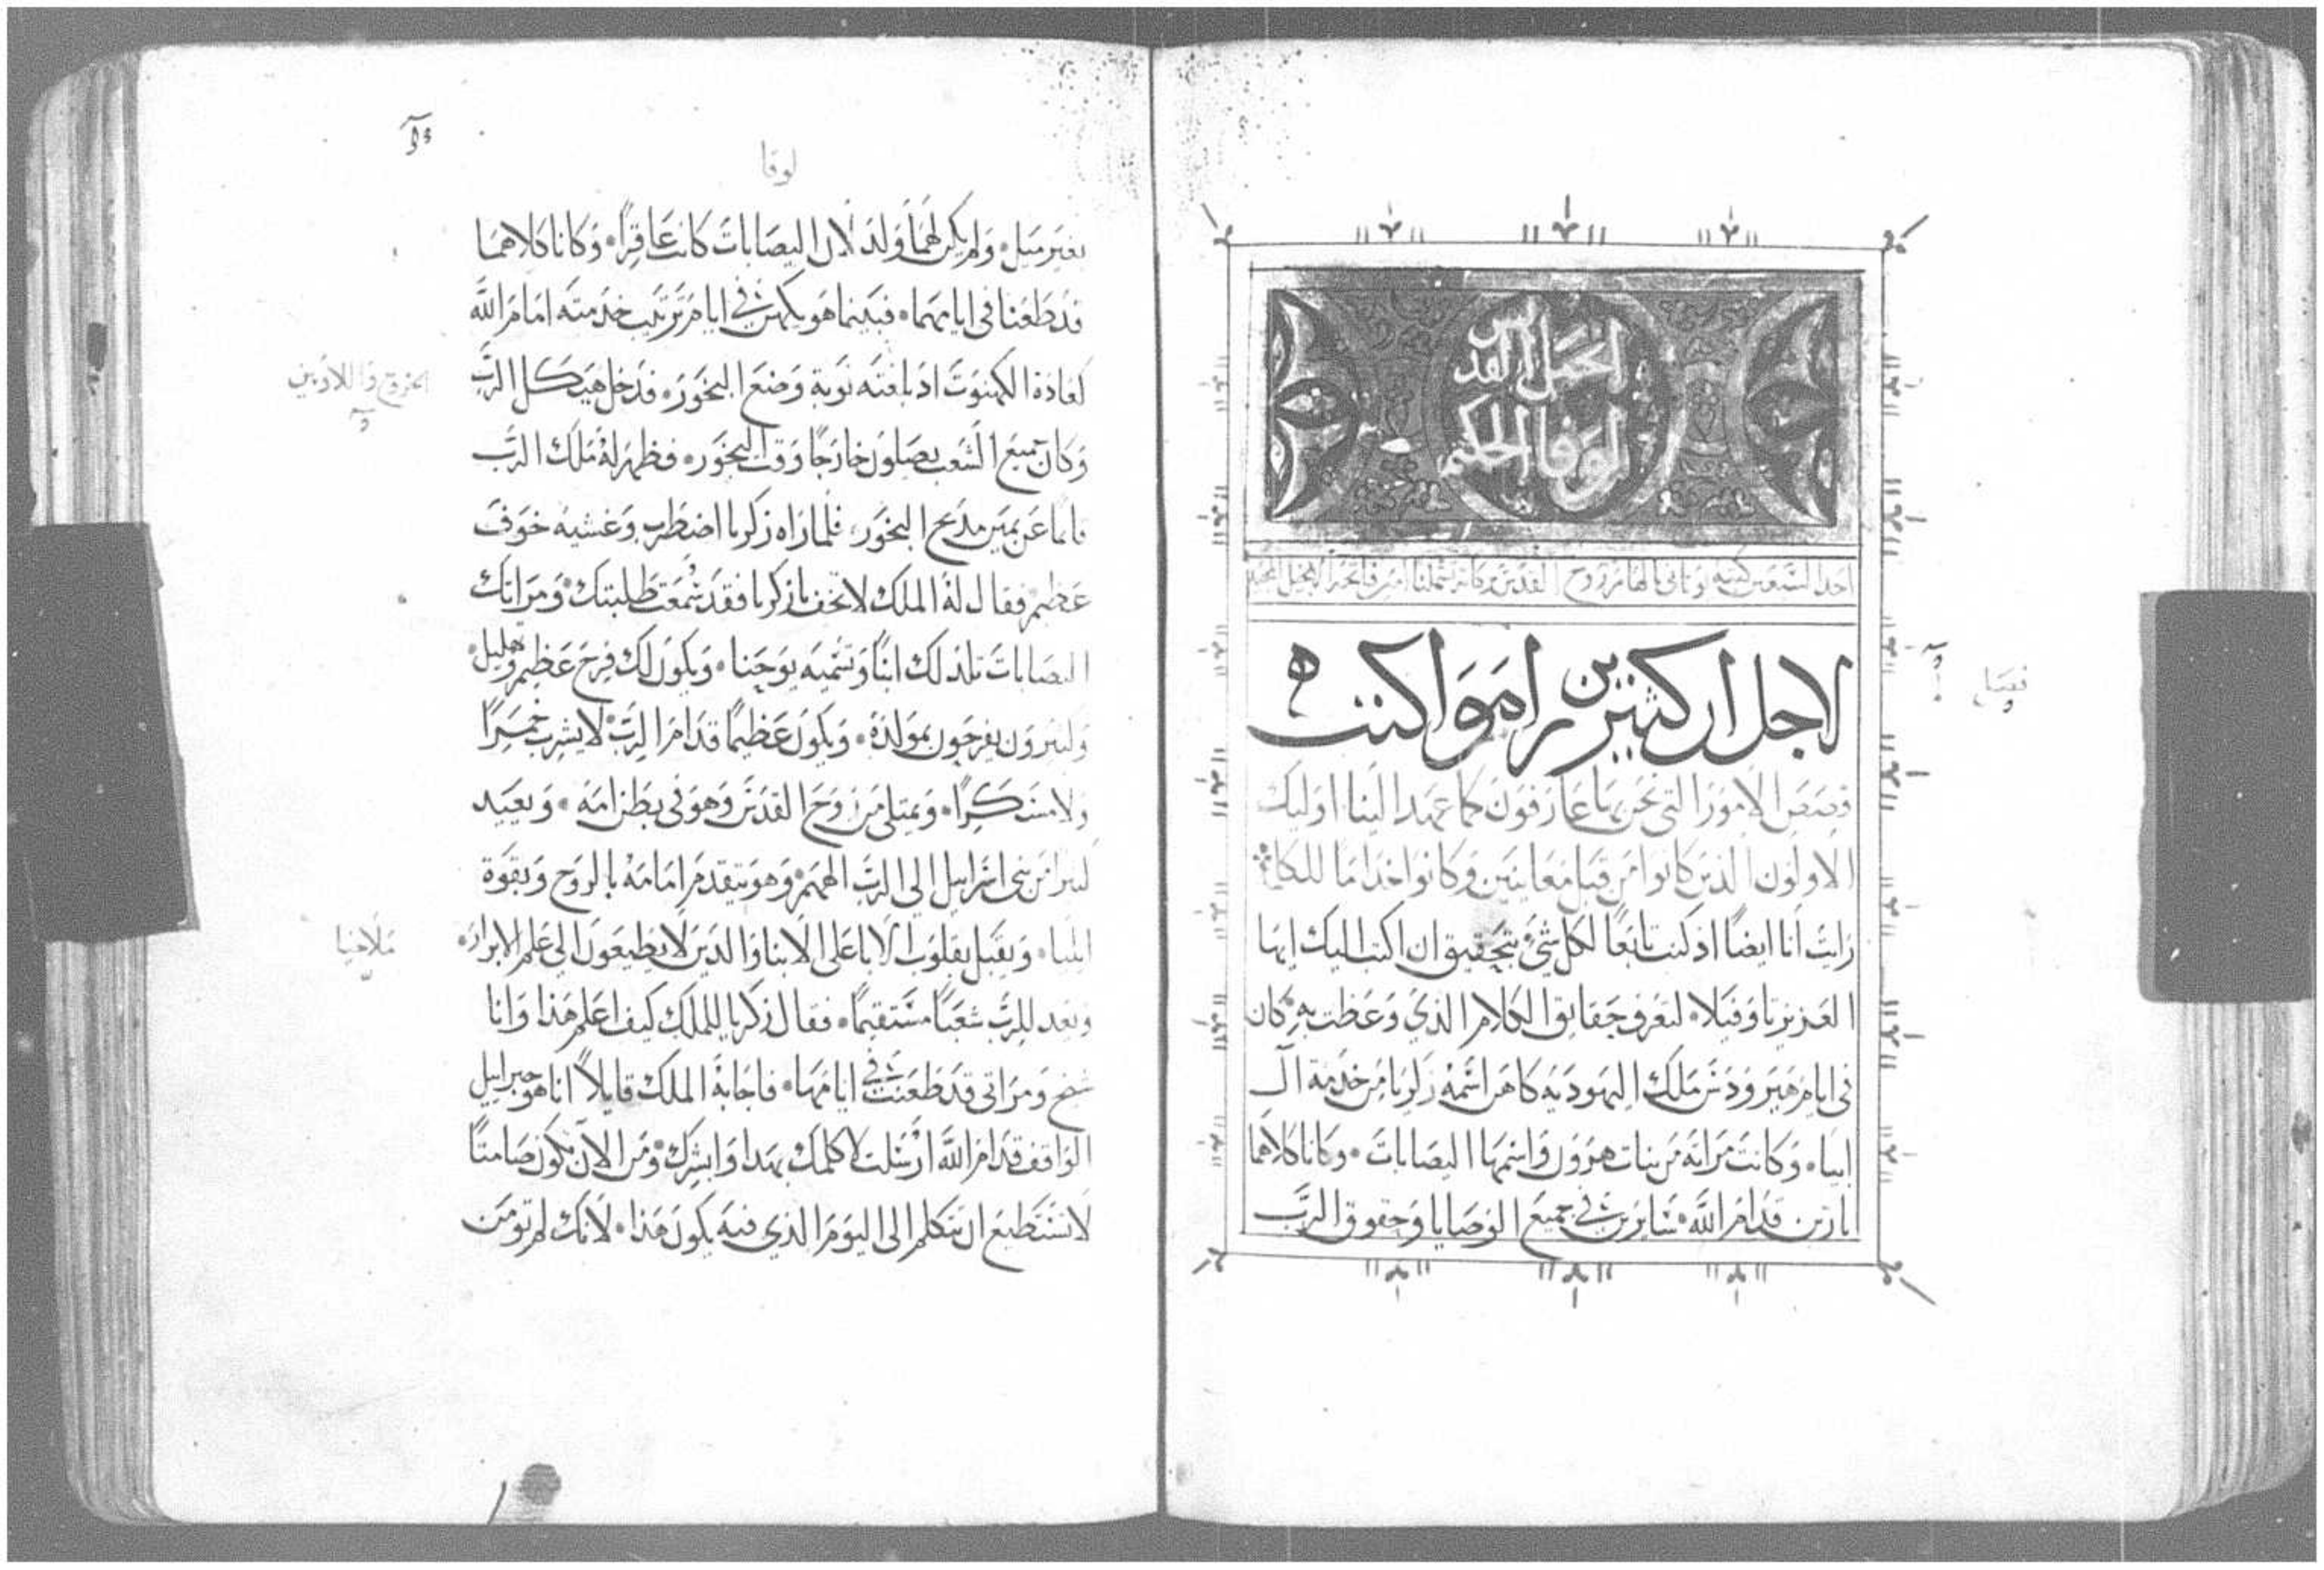 انجيل القديس
لوقا الحكيم
احد السبعين كتبه يوناني بالهام روح القدس بركاته تشملنا امين فاتحة الانجيل المجيد
فصل
لاجل ان كثيرين راموا كتب
قصص الامور التي نحن بها عارفون كما عهد الينا اوليك
الاولون الذين كانوا من قبل معاينين وكانوا خداما للكلمة
رايت انا ايضا اذ كنت تابعا لكل شي بتحقيق ان اكتب اليك ايها
العزيز تاوفيلا لتعرف حقايق الكلام الذي وعظت به كان
في ايام هيرودس ملك اليهودية كاهن اسمه زكريا من خدمة ال
ابيا وكانت مراته من بنات هرون واسمها اليصابات وكانا كلاهما
بارين قدام الله سايرين في جميع الوصايا وحقوق الرب
لوقا
بغير ميل ولم يكن لهما ولد لان اليصابات كانت عاقرا وكانا كلاهما
قد طعنا في ايامهما فبينما هو يكهن في ايام ترتيب خدمته امام الله
كعادة الكهنوت اذ بلغته نوبة وضع البخور فدخل هيكل الرب
الخروج واللاويين
وكان جميع الشعب يصلون خارجا وقت البخور فظهر له ملاك الرب
قايما عن يمين مذبح البخور فلما راه زكريا اضطرب وغشيه خوف
عظيم فقال له الملك لا تخف يا زكريا فقد سمعت طلبتك ومراتك
اليصابات تلد لك ابنا وتسميه يوحنا ويكون لك فرح عظيم وتهليل
وكثيرون يفرحون بمولده ويكون عظيما قدام الرب لا يشرب خمرا
ولا مسكرا ويمتلي من روح القدس وهو في بطن امه ويعيد
كثيرا من بني اسراييل الي الرب الههم وهو يتقدم امامه بالروح وبقوة
ايليا ويقبل بقلوب الابا على الابنا والذين لا يطيعون الى علم الابرار
ملاخيا
ويعد للرب شعبا مستقيما فقال زكريا للملك كيف اعلم هذا وانا
شيخ ومراتي قد طعنت في ايامها فاجابه الملك قايلا انا هو جبراييل
الواقف قدام الله ارسلت لاكلمك بهذا وابشرك ومن الان تكون صامتا
لا تستطيع ان تتكلم الى اليوم الذي فيه يكون هذا لانك لم تومن